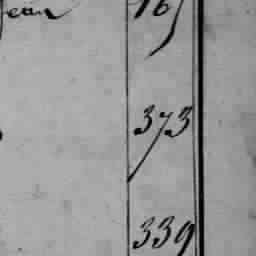 Jean 165
373
339